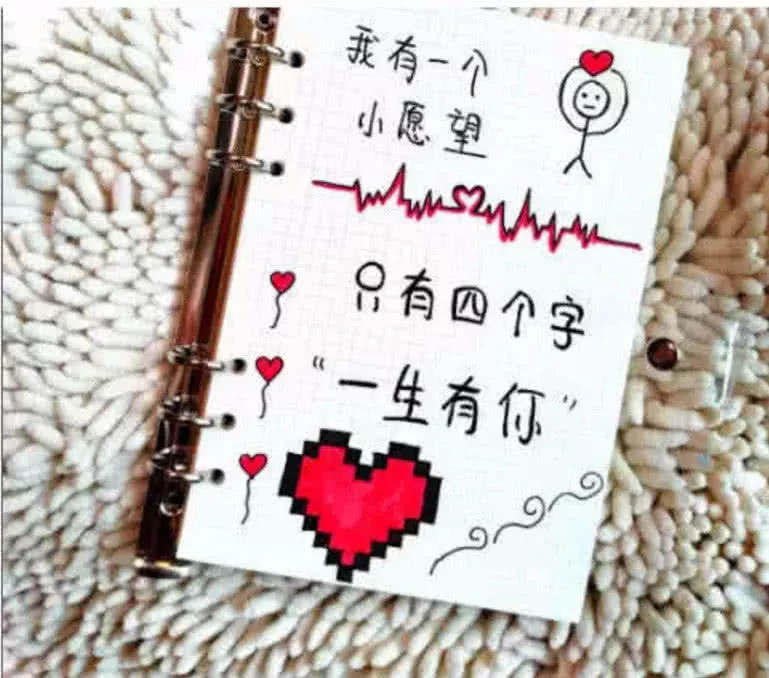 我有一个
小愿望
只有四个字
“一生有你”